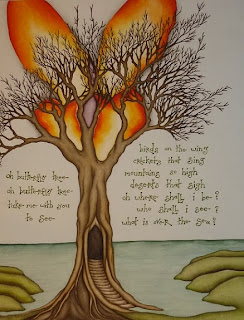 oh butterfly tree-
oh butterfly tree-
take me with you
to see-
birds on the wing
crickets that sing
mountains so high
deserts that sigh
oh where shall i be?
who shall i see?
what is over the sea?